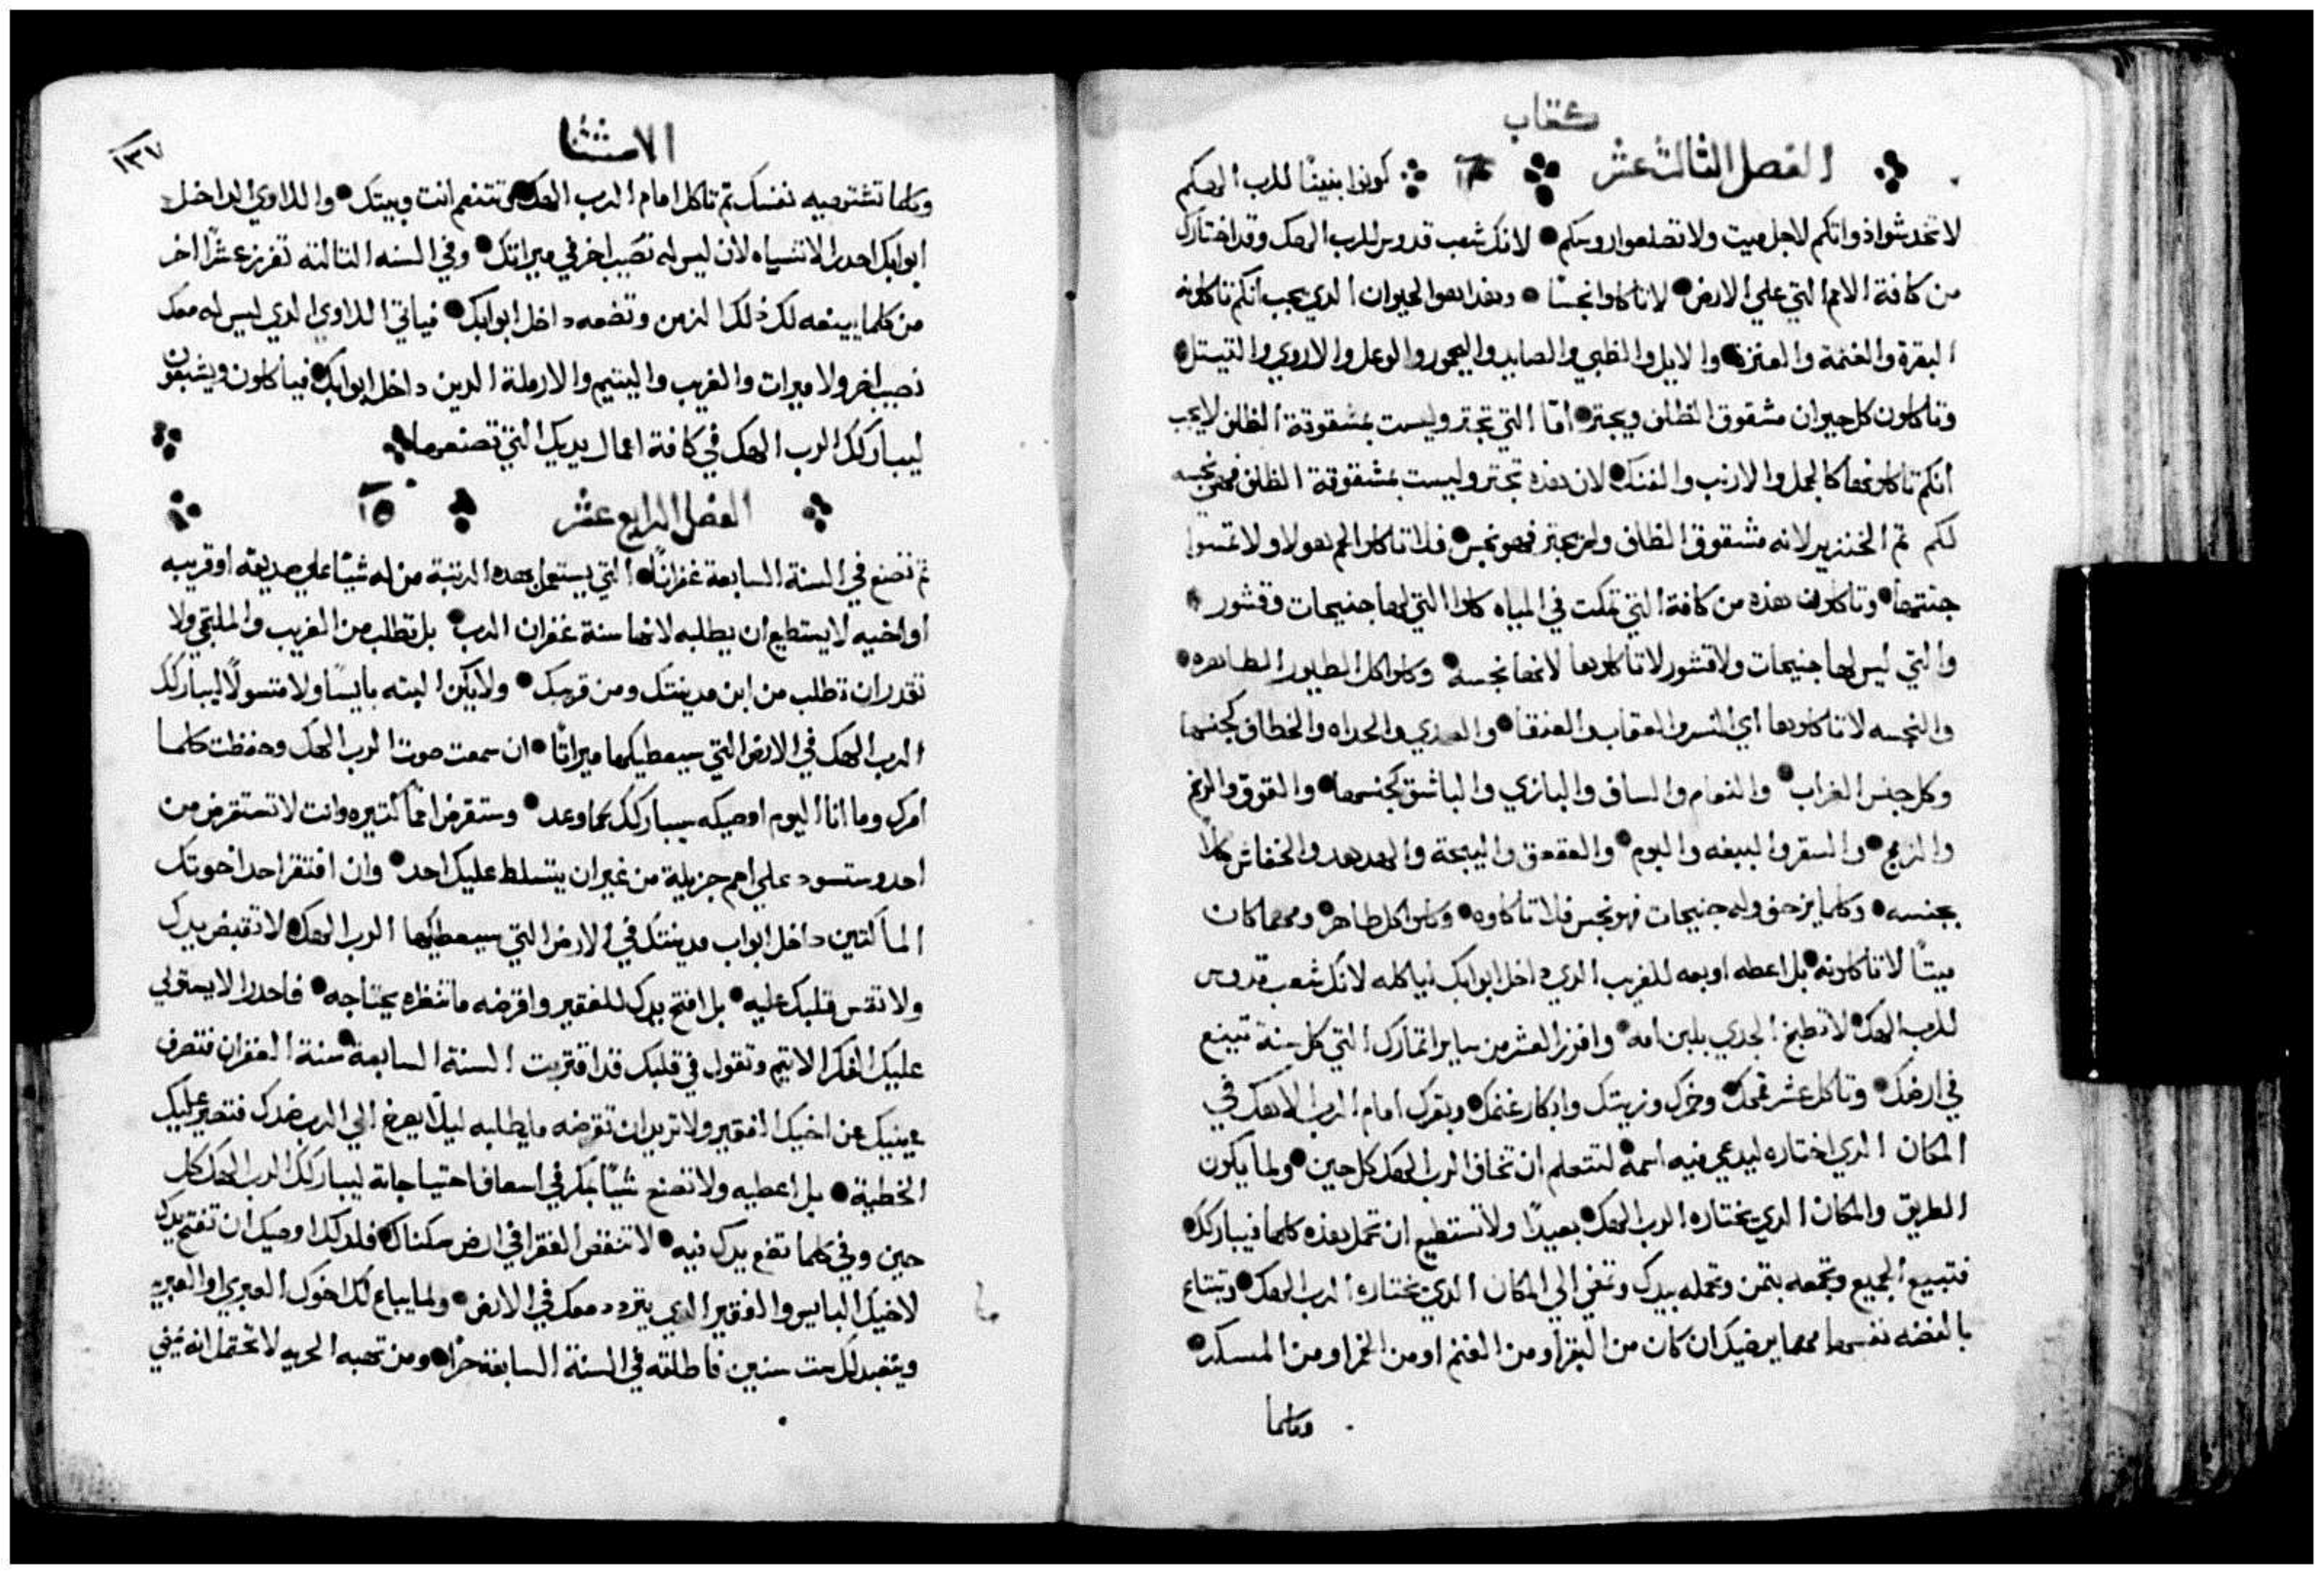 كتاب
الفصل الثالث عشر ١٤ كونوا بنينًا للرب الهكم
لا تخدشوا ذواتكم لاجل ميت ولا تصلعوا روسكم لانك شعب قدوس للرب الهك وقد اختارك
من كافة الامم التي علي الارض لا تاكلوا نجسًا وهذا هو الحيوان الدي يجب انكم تاكلونه
البقرة والغنمة والعنزه والايل والظبي والصايد واليحمور والوعل والاروي والتيتل
وتاكلون كل حيوان مشقوق الظلف ويجتر امّا التي تجتر وليست بمشقوقة الظلف لا يجب
انكم تاكلونها كالجمل والارنب والفنك لان هذه تجتر وليست بمشقوقة الظلف فهي نجسه
لكم ثم الخنزير لانه مشقوق الظلف ولم يجتر فهو نجس فلا تاكلوا لحم هولاء ولا تمسوا
جثتها وتاكلون هذه من كافة التي تمكث في المياه كلوا التي لها جنيحات وقشور
والتي ليس لها جنيحات ولا قشور لا تاكلوها لانها نجسه وكلوا كل الطيور الطاهره
والنجسه لا تاكلوها اي النسر والعقاب والعنقا والصدي والحداه والخطاف كجنسها
وكل جنس الغراب والنعام والساف والبازي والباشق كجنسها والقوق والرخم
والزمج والسقر والببغه والبوم والعقعق والبيحة والهدهد والخفاش كلًا
بجنسه وكلما يزحف وله جنيحات فهو نجس فلا تاكلوه وكلوا كل طاهر ومهما كان
ميتًا لا تاكلونه بل اعطه او بعه للغريب الدي داخل ابوابك لياكله لانك شعب قدوس
للرب الهك لا تطبخ الجدي بلبن امه وافرز العشر من ساير اثمارك التي كل سنة تينع
في ارضك وتاكل عشر قمحك وخمرك وزيتك وابكار غنمك وبقرك امام الرب الاهك في
المكان الدي اختاره ليدعي فيه اسمه لتتعلم ان تخاف الرب الهك كل حين ولما يكون
الطريق والمكان الدي يختاره الرب الهك بعيدًا ولا تستطيع ان تحمل هذه كلها فيباركك
فتبيع الجميع وتجمعه بثمن وتحمله بيدك وتمضي الي المكان الدي يختاره الرب الهك وتبتاع
بالفضه نفسها مهما يرضيك ان كان من البقر او من الغنم او من الخمر او من المسكر
وكلما
الاستثنا
١٣٧
وكلما تشتهيه نفسك ثم تاكل امام الرب الهك وتتنعم انت وبيتك واللاوي الداخل
ابوابك احدر الا تنسياه لان ليس له نصيب اخر في ميراثك وفي السنه الثالثه تفرز عشرًا اخر
من كلما يينعه لك ذلك الزمن وتضعه داخل ابوابك فياتي اللاوي الدي ليس له معك
نصيب اخر ولا ميرات والغريب واليتيم والارملة الدين داخل ابوابك فياكلون ويشبعون
ليباركك الرب الهك في كافة اعمال يديك التي تصنعها
الفصل الرابع عشر ١٥
ثم تصنع في السنة السابعة غفرانًا التي يستعمل بهده الرتبة من له شيًا علي صديقه او قريبه
او اخيه لا يستطيع ان يطلبه لانها سنة غفران الرب بل تطلب من الغريب والملتجي ولا
تقدر ان تطلب من ابن مدينتك ومن قريبك ولا يكن البته بايسًا ولا متسولًا ليباركك
الرب الهك في الارض التي سيعطيكها ميراثًا ان سمعت صوت الرب الهك وحفظت كلما
امرك وما انا اليوم اوصيك به سيباركك كما وعد وستقرض اممًا كتيره وانت لا تستقرض من
احد وستسود علي امم جزيلة من غير ان يتسلط عليك احد وان افتقر احد اخوتك
الماكثين داخل ابواب مدينتك في الارض التي سيعطيكها الرب الهك لا تقبض يدك
ولا تقس قلبك عليه بل افتح يدك للفقير واقرضه ما تنظره يحتاجه فاحدر الا يستولي
عليك الفكر الاتيم وتقول في قلبك قد اقتربت السنة السابعة سنة الغفران فتصرف
عينيك عن اخيك الفقير ولا تريد ان تقرضه ما يطلبه ليلا يصرخ الي الرب ضدك فتصير عليك
الخطية بل اعطيه ولا تصنع شيًا بمكر في اسعاف احتياجاته ليباركك الرب الهك كل
حين وفي كلما تضع يدك فيه لا تنقض الفقرا في ارض سكناك فلدلك اوصيك ان تفتح يدك
لاخيك البايس والفقير الدي يتردد معك في الارض ولما يباع لك اخوك العبري او العبريه
ويتعبد لك ست سنين فاطلقه في السنة السابعة حرًا ومن تهبه الحريه لا تحتمل انه يمضي